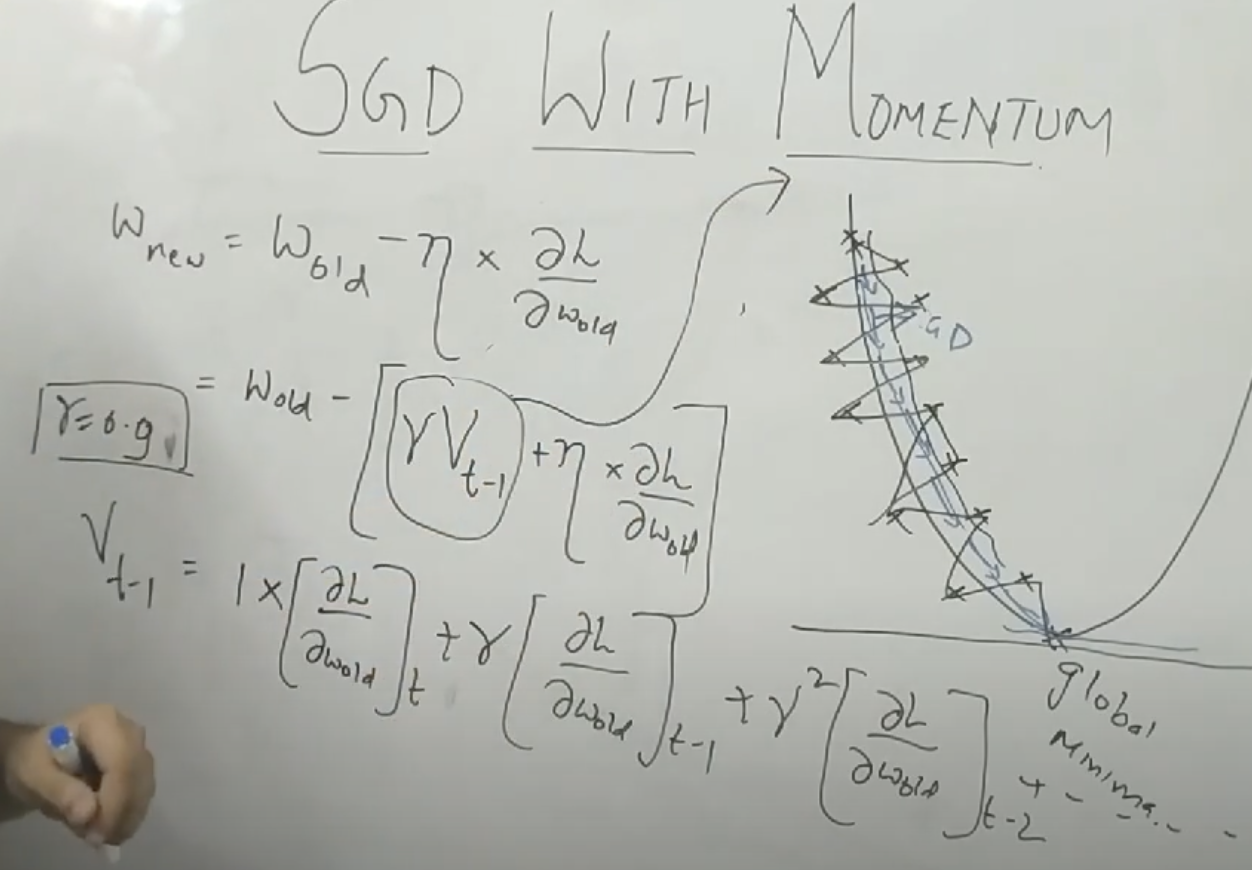 SGD WITH MOMENTUM
W_new = W_old - η × ∂L/∂w_old
= W_old - [γV_t-1 + η × ∂L/∂w_old]
γ=0.9
GD
V_t-1 = 1×[∂L/∂w_old]_t + γ[∂L/∂w_old]_t-1 + γ²[∂L/∂w_old]_t-2 + - - - -
global
minima